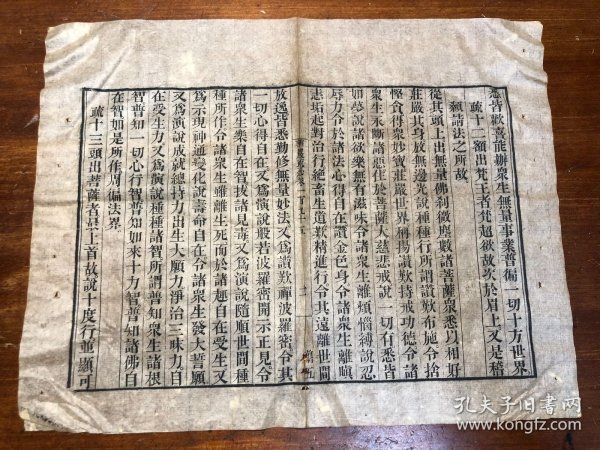 悉皆歡喜能辦衆生無量事業普徧一切十方世界
疏十二額出梵王者梵超欲故次於眉上又是稽
顙請法之所故
從其頭上出無量佛剎微塵數諸菩薩衆悉以相好
莊嚴其身放無邊光說種種行所謂讚歎布施令捨
慳貪得衆妙寶莊嚴世界稱揚讚歎持戒功德令諸
衆生永斷諸惡住於菩薩大慈悲戒說一切有悉皆
如夢說諸欲樂無有滋味令諸衆生離煩惱縛說忍
辱力令於諸法心得自在讚金色身令諸衆生離瞋
恚垢起對治行絕畜生道歎精進行令其遠離世間
放逸皆悉勤修無量妙法又爲讚歎禪波羅密令其
一切心得自在又爲演說般若波羅密開示正見令
諸衆生樂自在智拔諸見毒又爲演說隨順世間種
種所作令諸衆生雖離生死而於諸趣自在受生又
爲示現神通變化說壽命自在令諸衆生發大誓願
又爲演說成就總持力出生大願力淨治三昧力自
在受生力又爲演說種種諸智所謂普知衆生諸根
智普知一切心行智普知如來十力智普知諸佛自
在智如是所作周徧法界
疏十三頭出菩薩者最上首故說十度行並顯可
孔夫子旧书网
www.kongfz.com